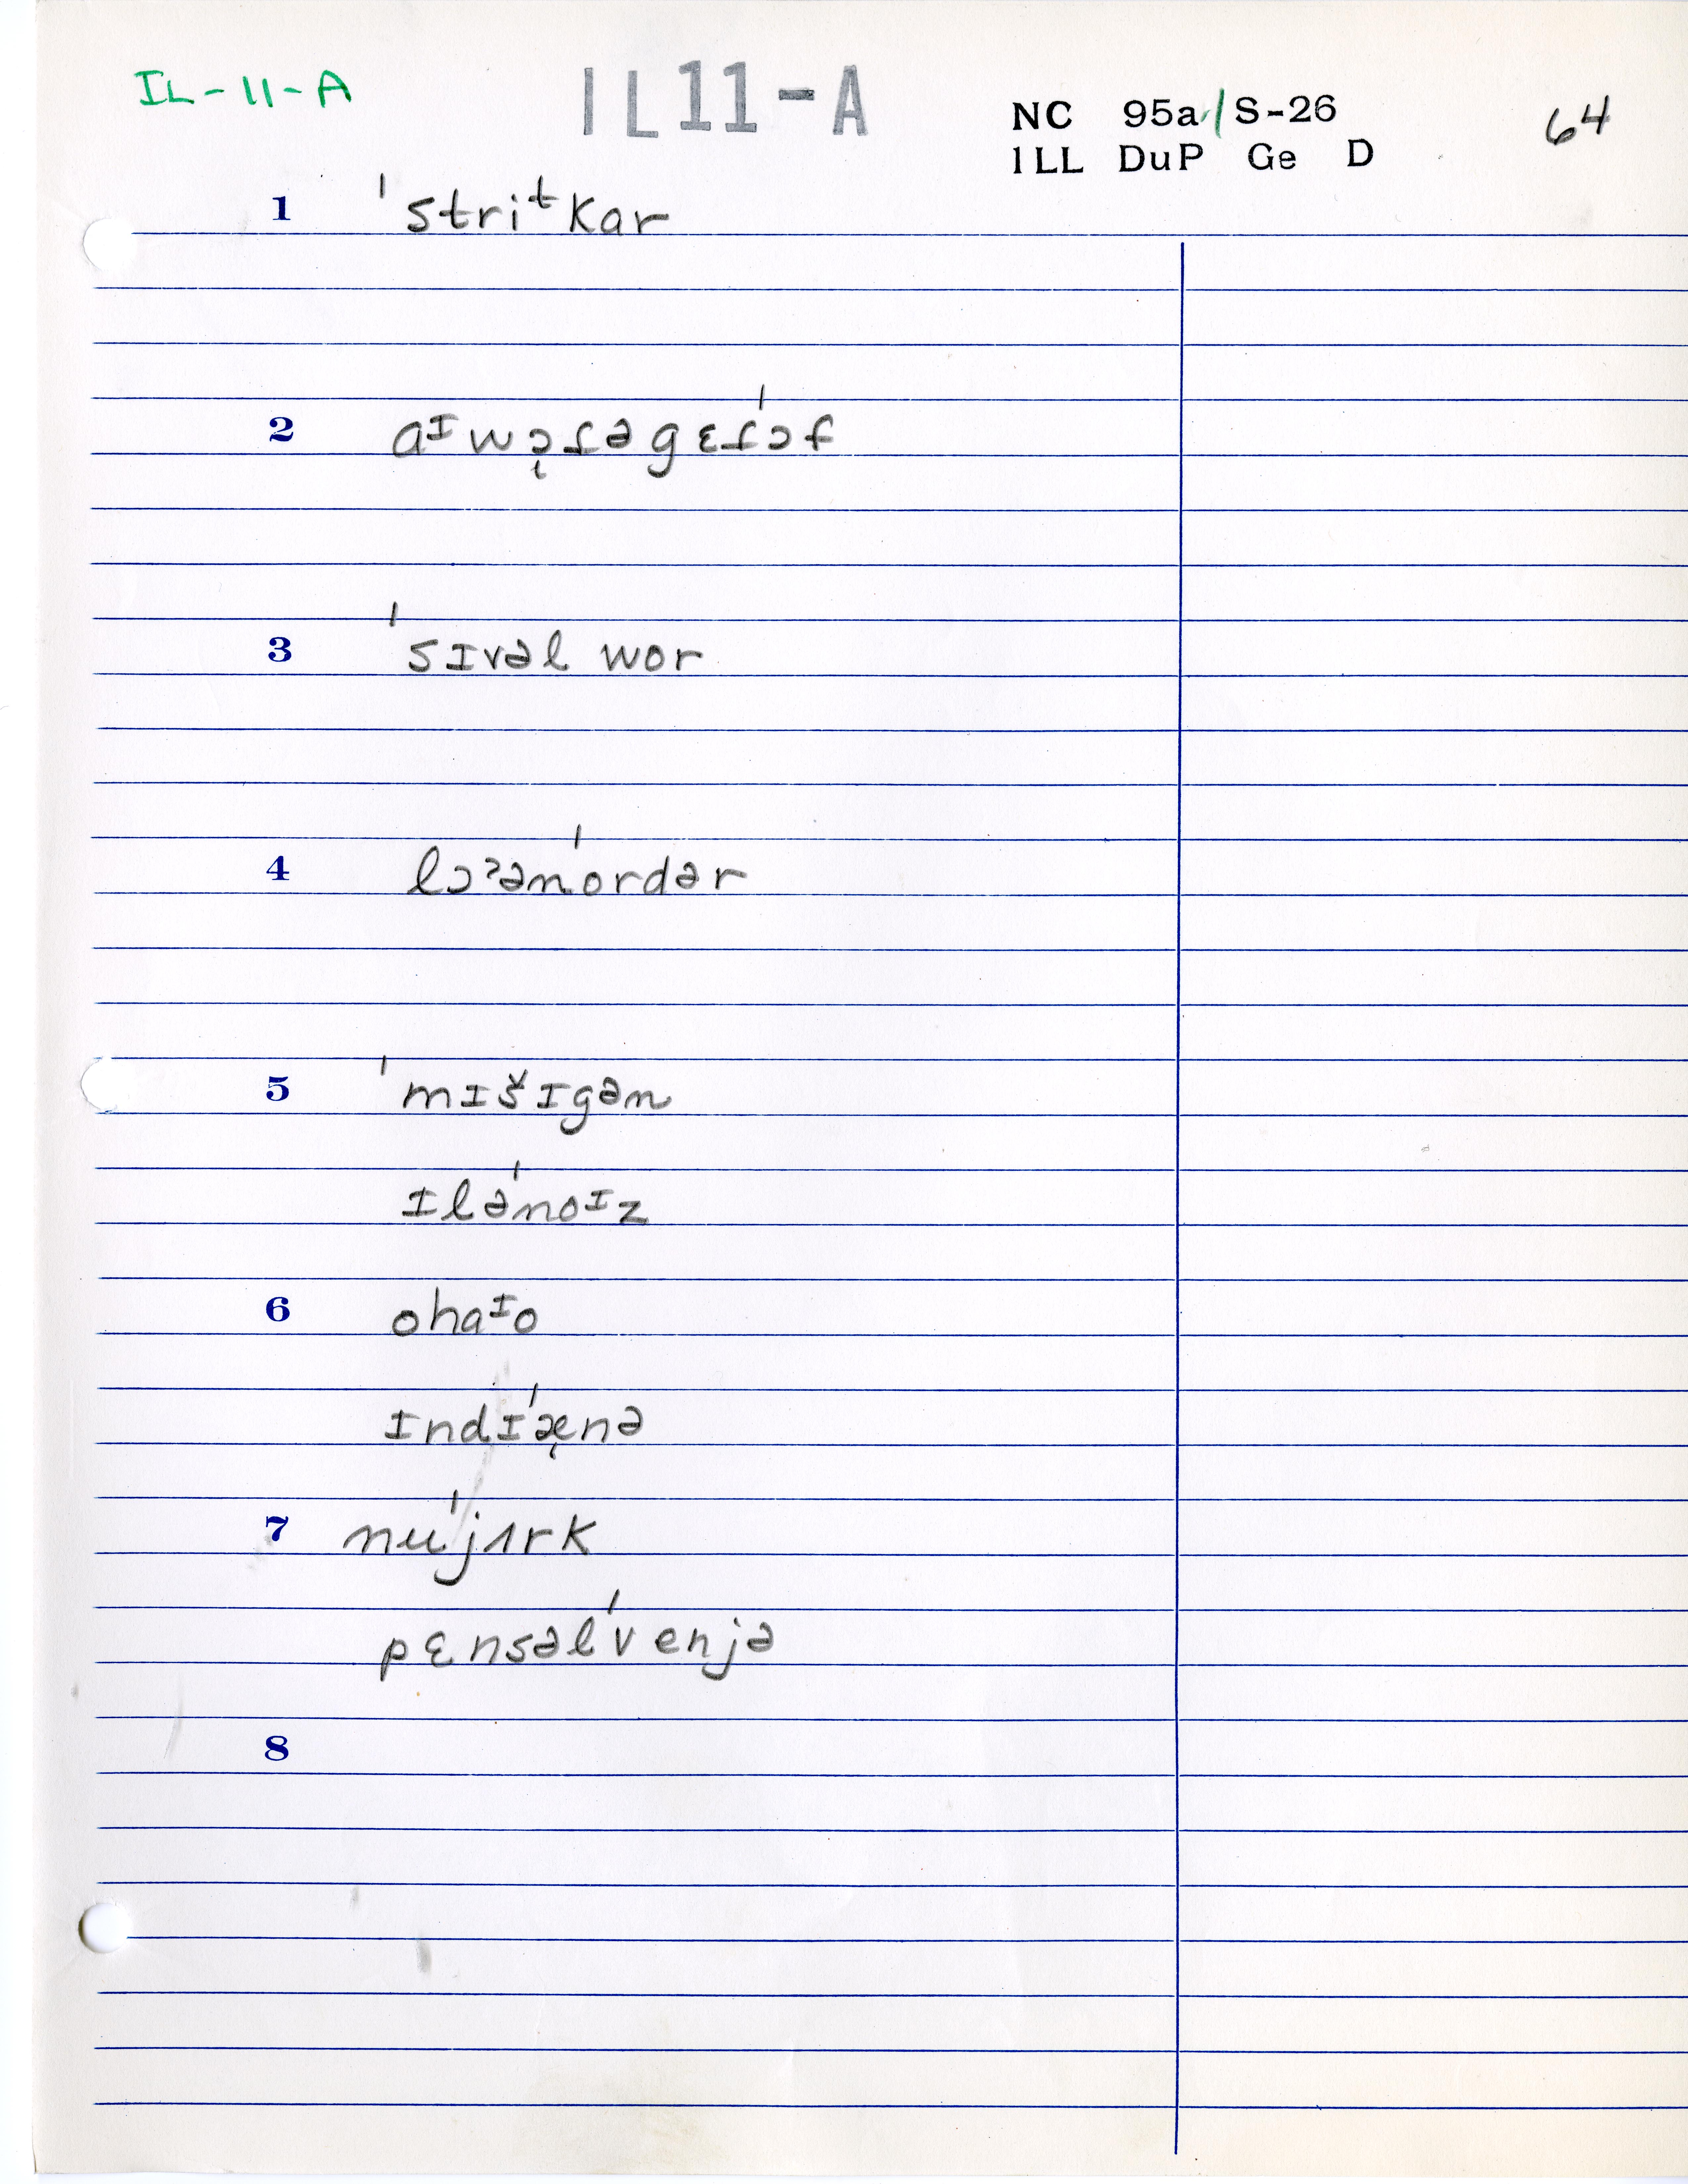 IL-11-A IL11-A NC 95a/S-26 64
ILL DuP Ge D
1 ˈstriᵗkar
2 aᶦwɔ̨ɾəgɛɾˈɔf
3 ˈsɪvəl wor
4 lɔˀənˈordər
5 ˈmɪšɪgən
ɪləˈnoᶦz
6 ohaᶦo
ɪndɪˈæ̨nə
7 nuˈjɪrk
pɛnsəlˈvenjə
8